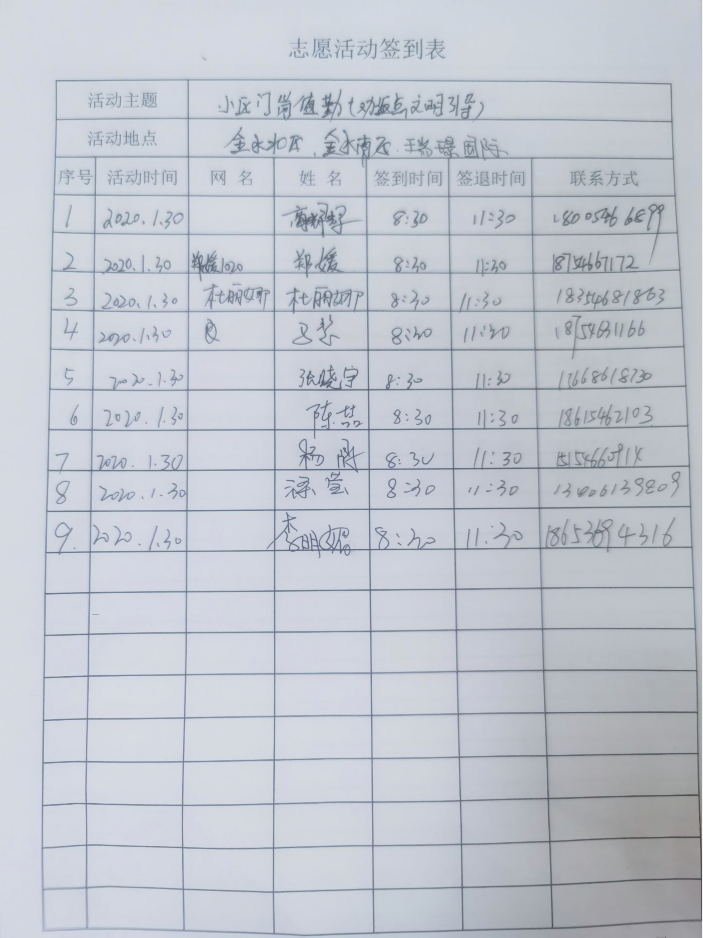 志愿活动签到表
活动主题 小区门岗值勤(劝返点文明引导)
活动地点 金水北区、金水南区、瑞璟国际
序号 活动时间 网 名 姓 名 签到时间 签退时间 联系方式
1 2020.1.30 8:30 11:30 18005466899
2 2020.1.30 郑媛1020 郑媛 8:30 11:30 18754667172
3 2020.1.30 杜丽娜 杜丽娜 8:30 11:30 18354681863
4 2020.1.30 8:30 11:30 18754631166
5 2020.1.30 张晓宇 8:30 11:30
6 2020.1.30 陈喆 8:30 11:30 18615462103
7 2020.1.30 杨 8:30 11:30
8 2020.1.30 8:30 11:30
9. 2020.1.30 李明 8:30 11:30